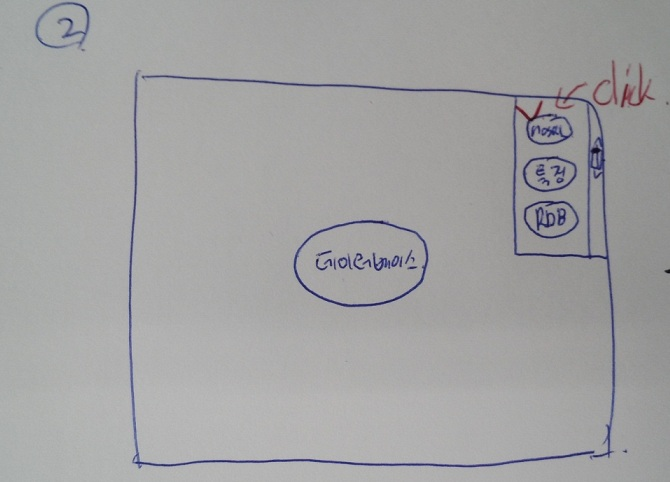 2
click.
NOSQL
특정
RDB
데이터베이스